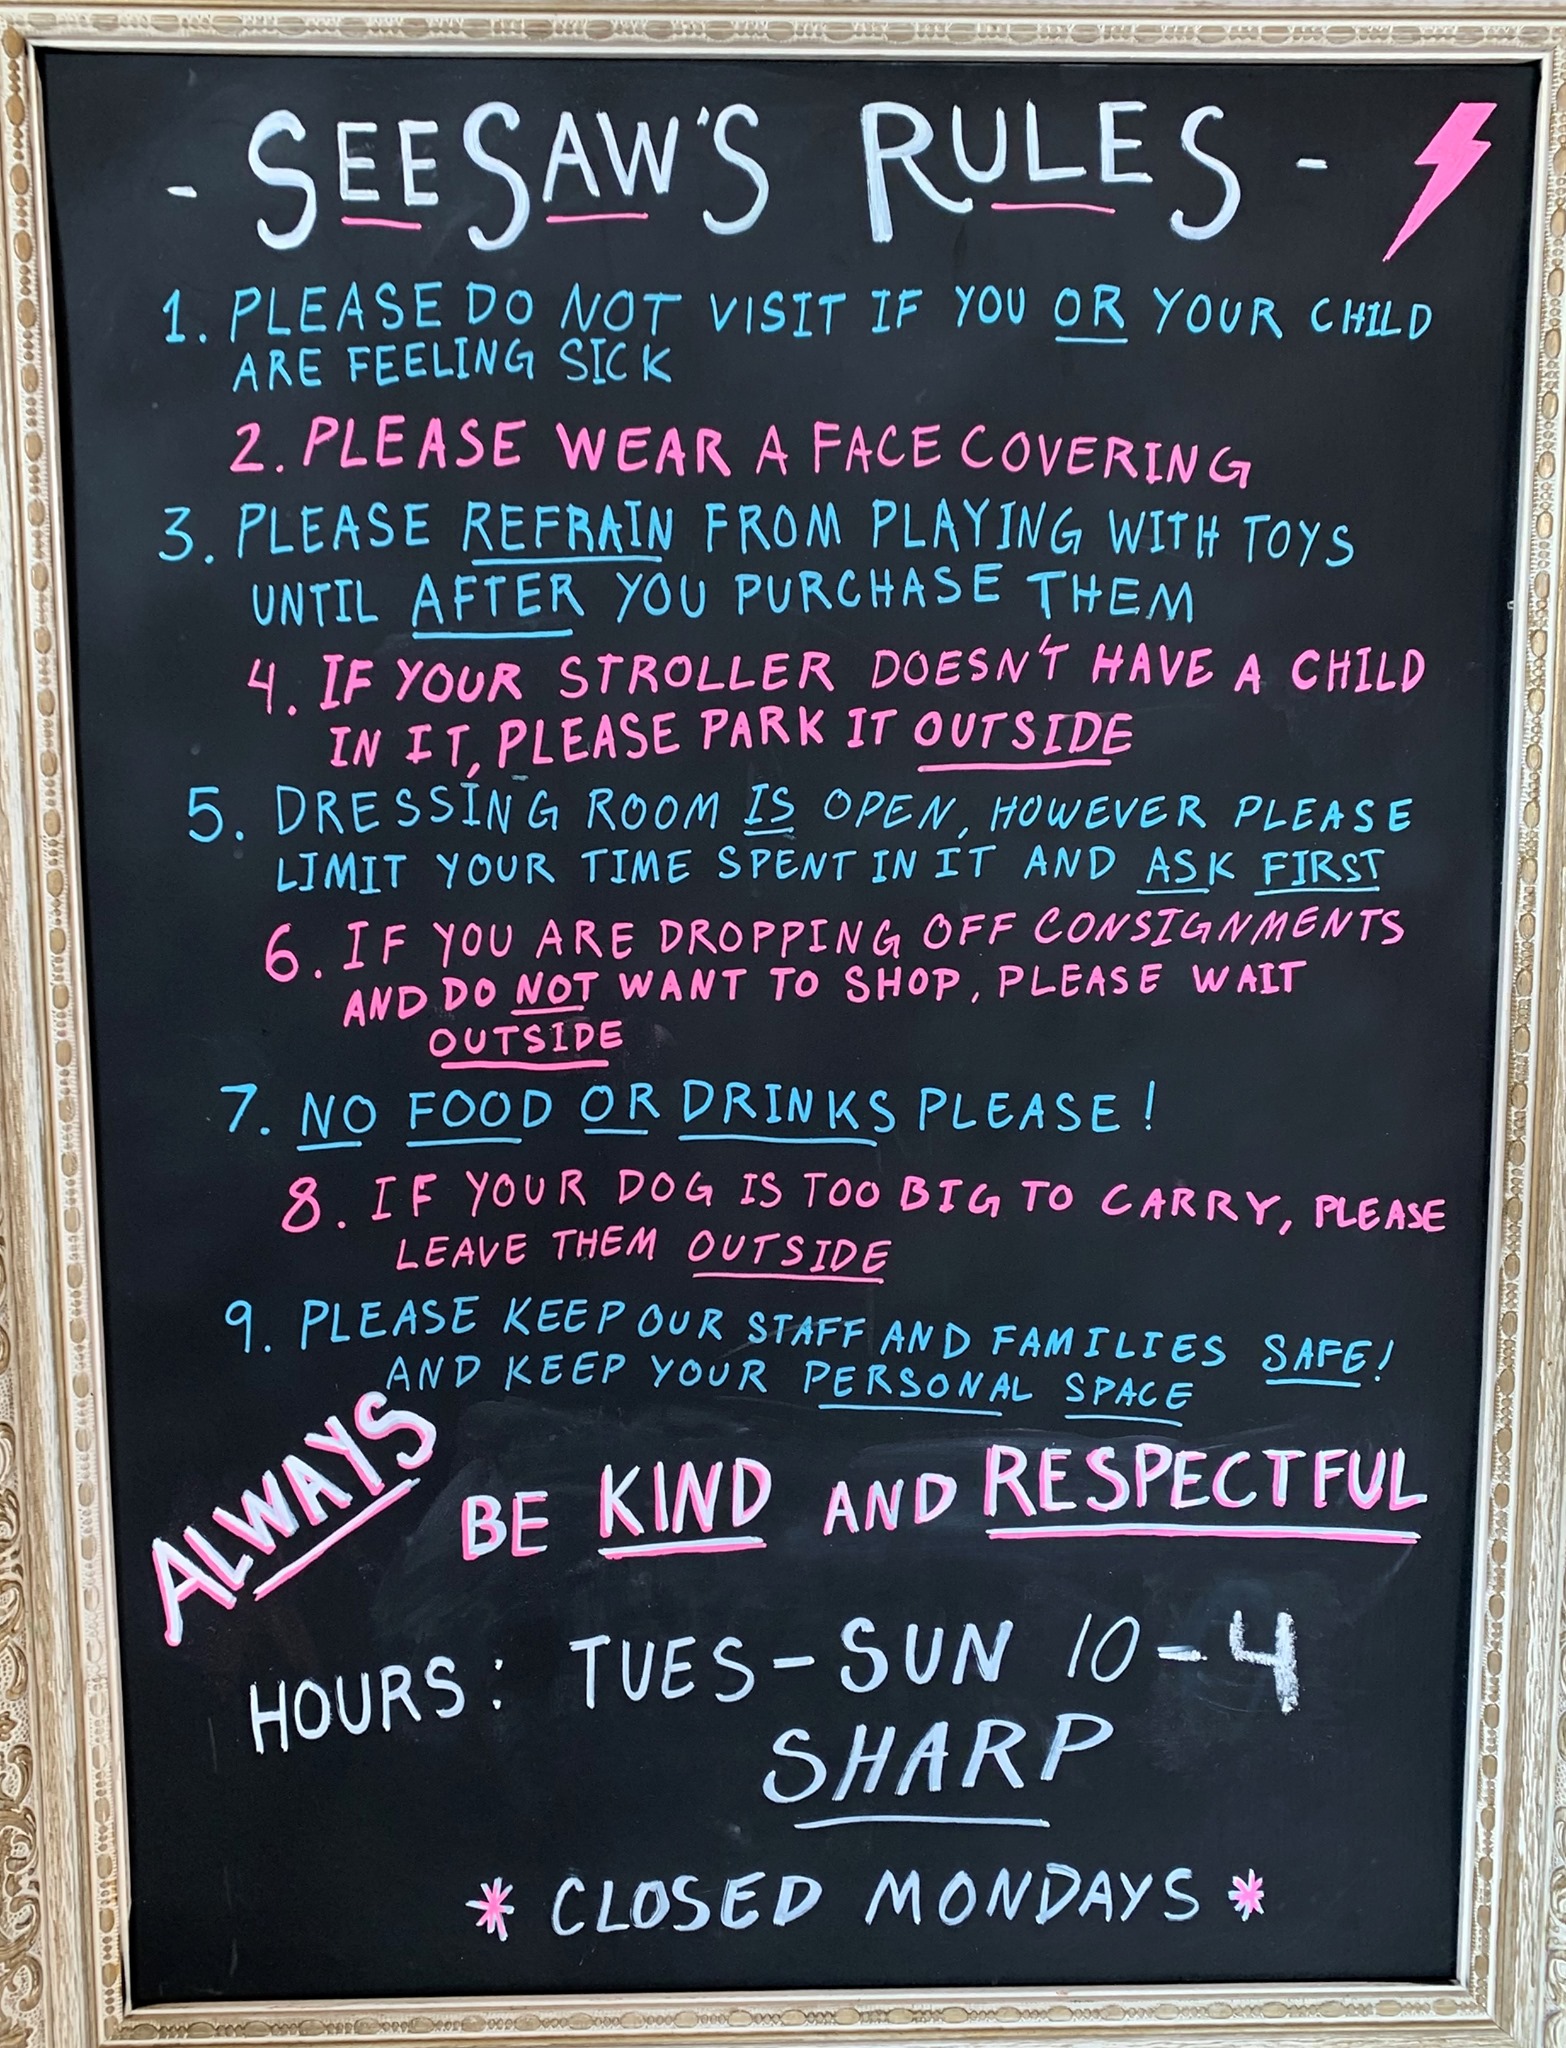 - SEESAW'S RULES -
1. PLEASE DO NOT VISIT IF YOU OR YOUR CHILD
ARE FEELING SICK
2. PLEASE WEAR A FACE COVERING
3. PLEASE REFRAIN FROM PLAYING WITH TOYS
UNTIL AFTER YOU PURCHASE THEM
4. IF YOUR STROLLER DOESN'T HAVE A CHILD
IN IT, PLEASE PARK IT OUTSIDE
5. DRESSING ROOM IS OPEN, HOWEVER PLEASE
LIMIT YOUR TIME SPENT IN IT AND ASK FIRST
6. IF YOU ARE DROPPING OFF CONSIGNMENTS
AND DO NOT WANT TO SHOP, PLEASE WAIT
OUTSIDE
7. NO FOOD OR DRINKS PLEASE!
8. IF YOUR DOG IS TOO BIG TO CARRY, PLEASE
LEAVE THEM OUTSIDE
9. PLEASE KEEP OUR STAFF AND FAMILIES SAFE!
AND KEEP YOUR PERSONAL SPACE
ALWAYS BE KIND AND RESPECTFUL
HOURS: TUES-SUN 10-4
SHARP
* CLOSED MONDAYS *